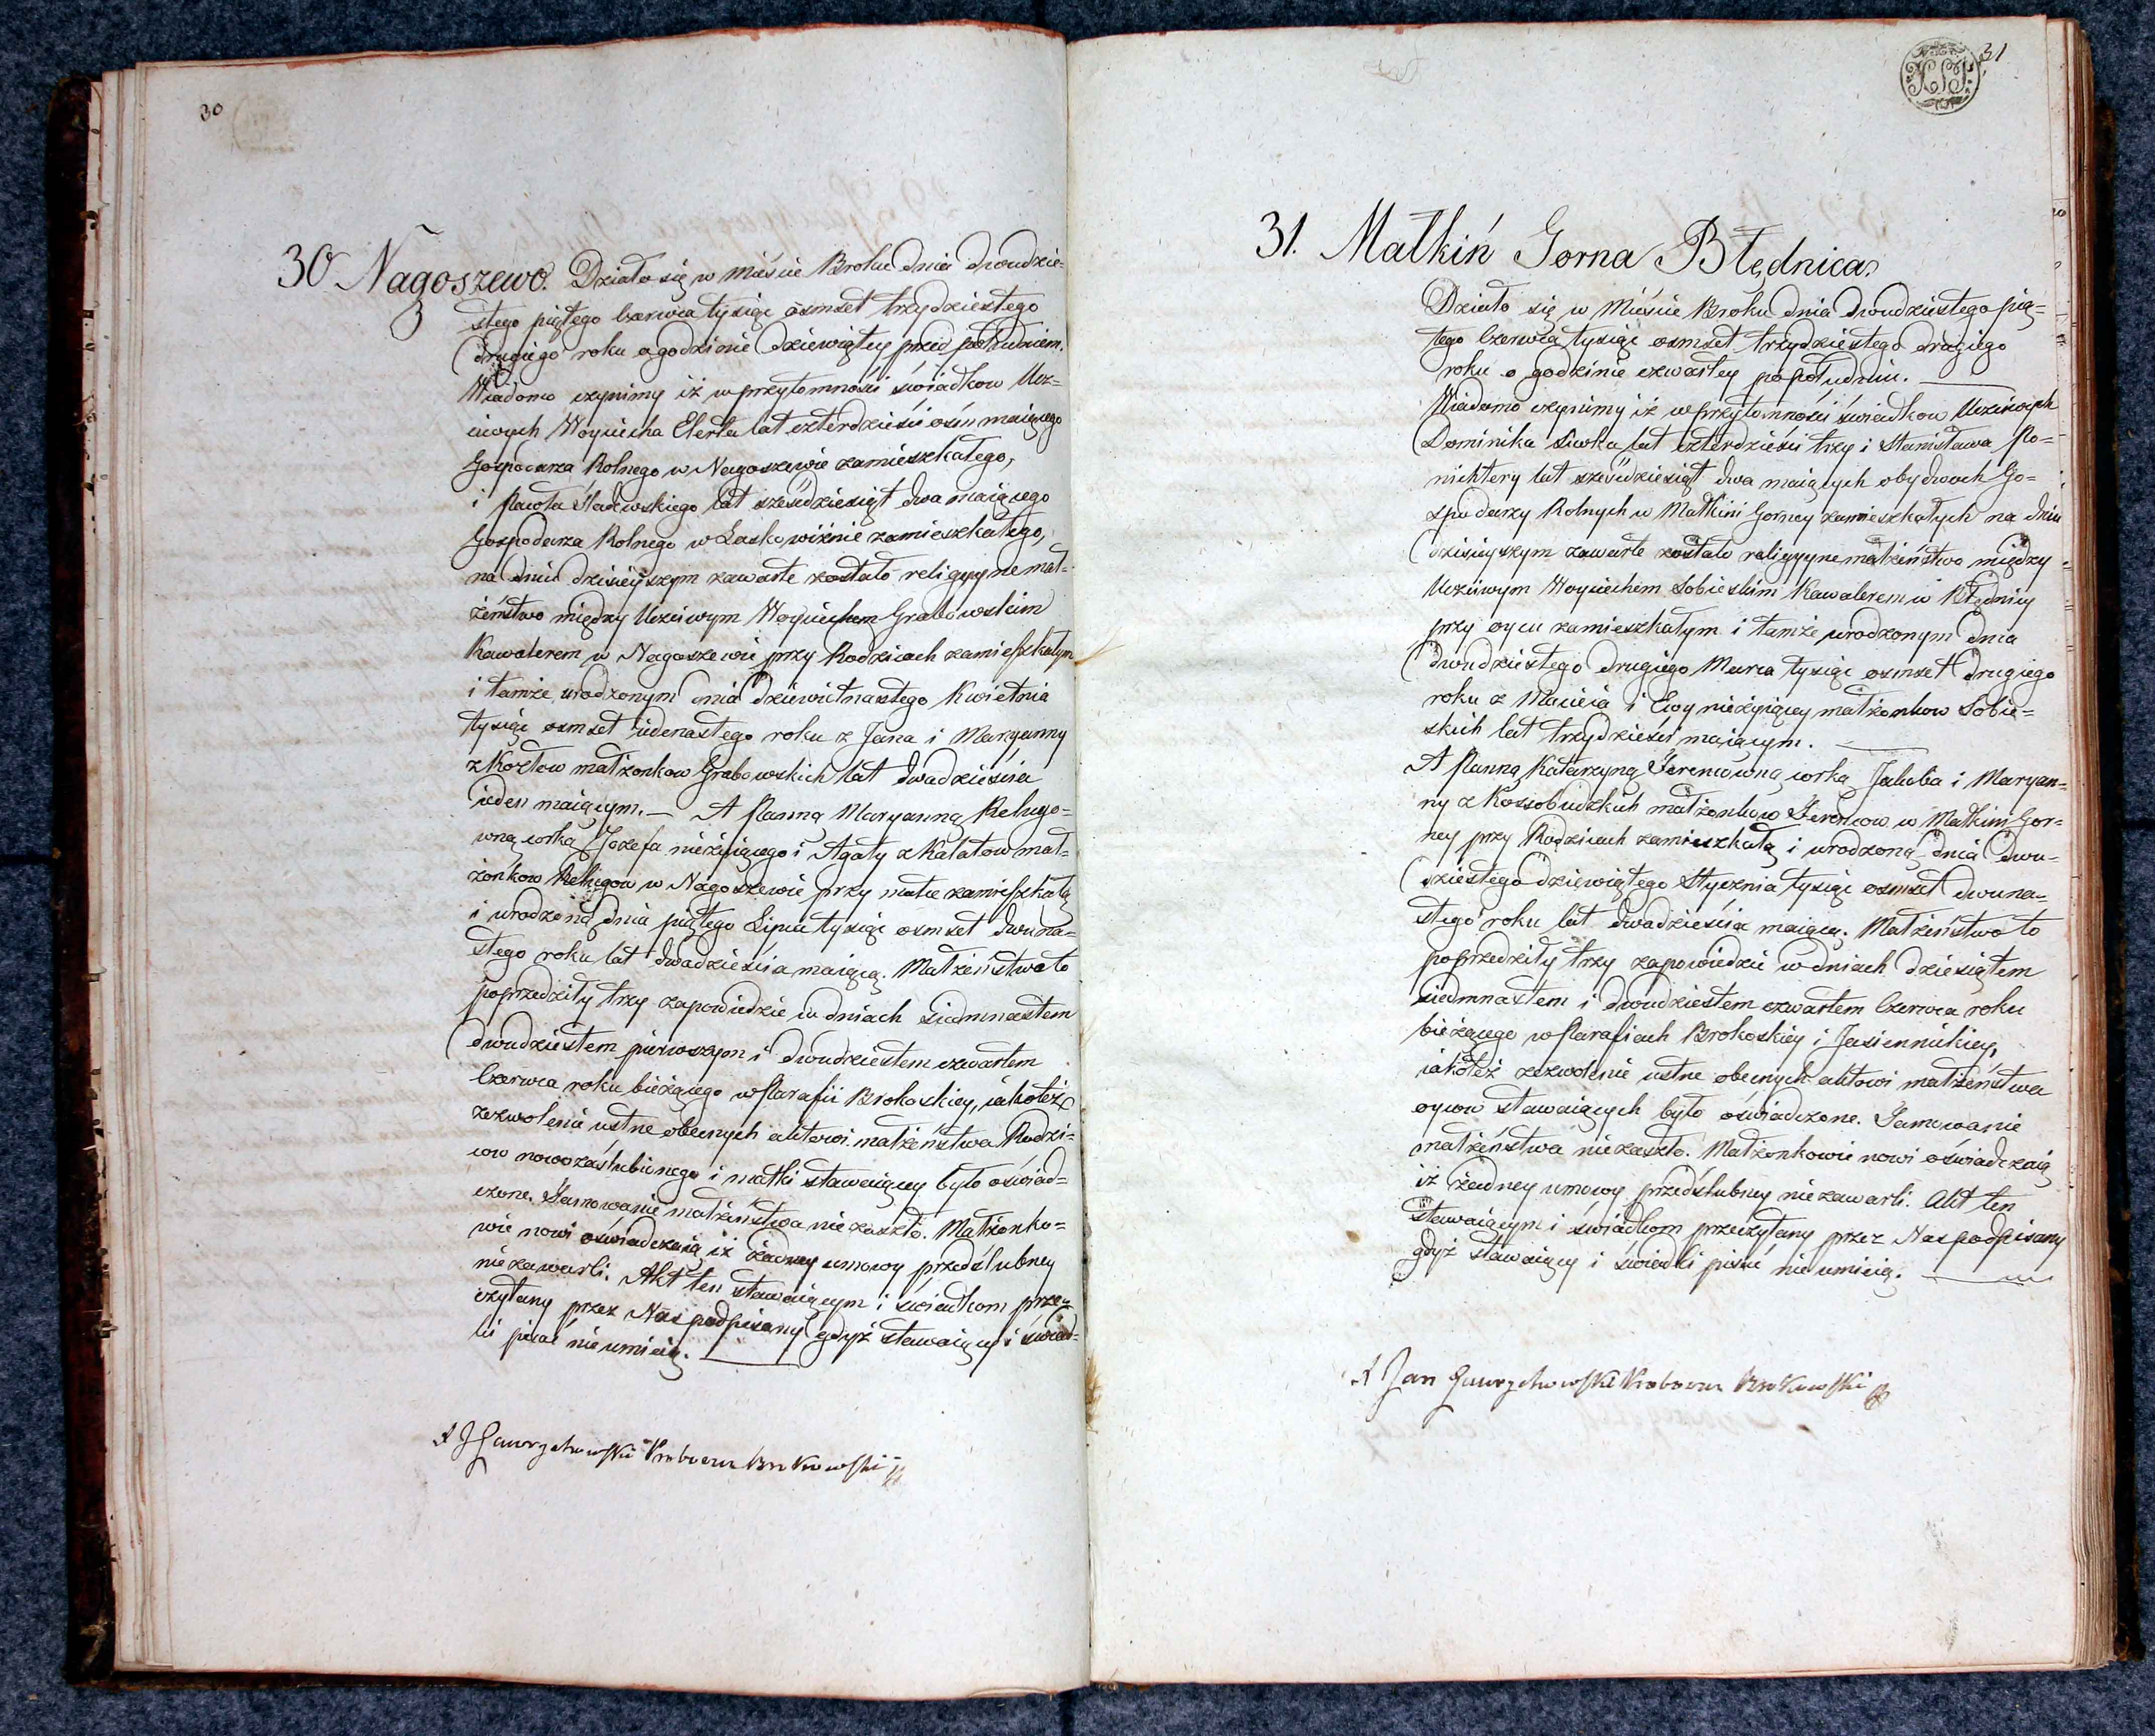 30
30 Nagoszewo. Działo się w Mieście Broku dnia dwudzie=
stego piątego Czerwca tysiąc ósmset trzydziestego
drugiego roku o godzinie dziewiątey przed południem.
Wiadomo czynimy iż w przytomności świadkow Ucz=
ciwych Woyciecha Elerta lat czterdzieści ośm maiącego
Gospodarza Rolnego w Nagoszewie zamieszkałego,
i Pawła lat sześćdziesiąt dwa maiącego
Gospodarza Rolnego w Laskowiźnie zamieszkałego,
na dniu dzisieyszym zawarte zostało religyyne mał=
żeństwo między Uczciwym Woyciechem Grabowskim
Kawalerem w Nagoszewie przy Rodzicach zamieszkałym
i tamże urodzonym dnia dziewietnastego Kwietnia
tysiąc osmset iedenastego roku z Jana i Maryanny
z Kozłow małżonkow Grabowskich lat dwadzieścia
ieden maiącym. — A Panną Maryanną Relugo=
wną corką Jozefa nieżyiącego i Agaty z Kalatow mał=
żonkow Relugow w Nagoszewie przy matce zamieszkałą
i urodzoną dnia piątego Lipca tysiąc osmset dwuna=
stego roku lat dwadzieścia maiącą. Małżeństwo to
poprzedziły trzy zapowiedzie w dniach siedmnastem
dwudziestem pierwszym i dwudziestem czwartem
Czerwca roku bieżącego w Parafii Brokoskiey, iakoteż
zezwolenie ustne obecnych aktowi małżeństwa Rodzi=
cow nowozaślubionego i matki stawaiącey było oświad=
czone. Tamowanie małżeństwa nie zaszło. Małżonko=
wie nowi oświadczaią iż żadney umowy przedślubney
nie zawarli. Akt ten stawaiącym i świadkom prze=
czytany przez Nas podpisany gdyż stawaiący i świad=
ki pisać nie umieią.
X J Gawrychowski Proboszcz Brokowski
31
31. Małkiń Gorna Błędnica
Działo się w Mieście Broku dnia dwudziestego pią=
tego Czerwca tysiąc osmset trzydziestego drugiego
roku o godzinie czwartey popołudniu.
Wiadomo czynimy iż w przytomności świadkow Uczciwych
Dominika Siwka lat czterdzieści trzy i Stanisława Po=
nichtery lat sześćdziesiąt dwa maiących obydwoch Go=
spodarzy Rolnych w Małkini Gorney zamieszkałych na dniu
dzisieyszym zawarte zostało religyyne małżeństwo między
Uczciwym Woyciechem Sobieskim Kawalerem w Błędnicy
przy oycu zamieszkałym i tamże urodzonym dnia
dwudziestego drugiego Marca tysiąc osmset drugiego
roku z Macieia i Ewy nieżyiącey małżonkow Sobie=
skich lat trzydzieści maiącym.
A Panną Katarzyną Jerencowną corką Jakuba i Maryan=
ny z Kossobudzkich małżonkow Jerencow w Małkini Gor=
ney przy Rodzicach zamieszkałą i urodzoną dnia dwu=
dziestego dziewiątego Stycznia tysiąc osmset dwuna=
stego roku lat dwadzieścia maiącą. Małżeństwo to
poprzedziły trzy zapowiedzie w dniach dziesiątem
siedmnastem i dwudziestem czwartem Czerwca roku
bieżącego w Parafiach Brokoskiey i Jasiennickiey,
iakoteż zezwolenie ustne obecnych aktowi małżeństwa
oycow stawaiących było oświadczone. Tamowanie
małżeństwa nie zaszło. Małżonkowie nowi oświadczaią
iż żadney umowy przedślubney nie zawarli. Akt ten
stawaiącym i świadkom przeczytany przez Nas podpisany
gdyż stawaiący i świadki pisać nie umieią.
X Jan Gawrychowski Proboszcz Brokowski